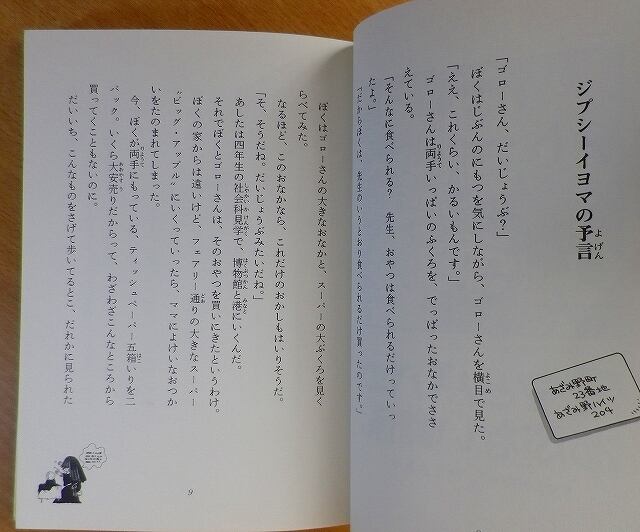 ジプシーイヨマの予言
「ゴローさん、だいじょうぶ?」
ぼくはじぶんのにもつを気にしながら、ゴローさんを横目で見た。
「ええ、これくらい、かるいもんです。」
ゴローさんは両手いっぱいのふくろを、でっぱったおなかでささ
えている。
「そんなに食べられる? 先生、おやつは食べられるだけっていっ
たよ。」
「だからぼくは、先生のいうとおり食べられるだけ買ったのです。」
あざみ野町
23番地
あざみ野ハイツ
204
ぼくはゴローさんの大きなおなかと、スーパーの大ぶくろを見く
らべてみた。
なるほど、このおなかなら、これだけのおかしもはいりそうだ。
「そ、そうだね。だいじょうぶみたいだね。」
あしたは四年生の社会科見学で、博物館と港にいくんだ。
それでぼくとゴローさんは、そのおやつを買いにきたというわけ。
ぼくの家からは遠いけど、フェアリー通りの大きなスーパー
"ビッグ・アップル"にいくっていったら、ママによけいなおつか
いをたのまれてしまった。
今、ぼくが両手にもっている、ティッシュペーパー五箱いりを二
パック。いくら大安売りだからって、わざわざこんなところから
買ってくこともないのに。
だいいち、こんなものをさげて歩いてるとこ、だれかに見られた
9